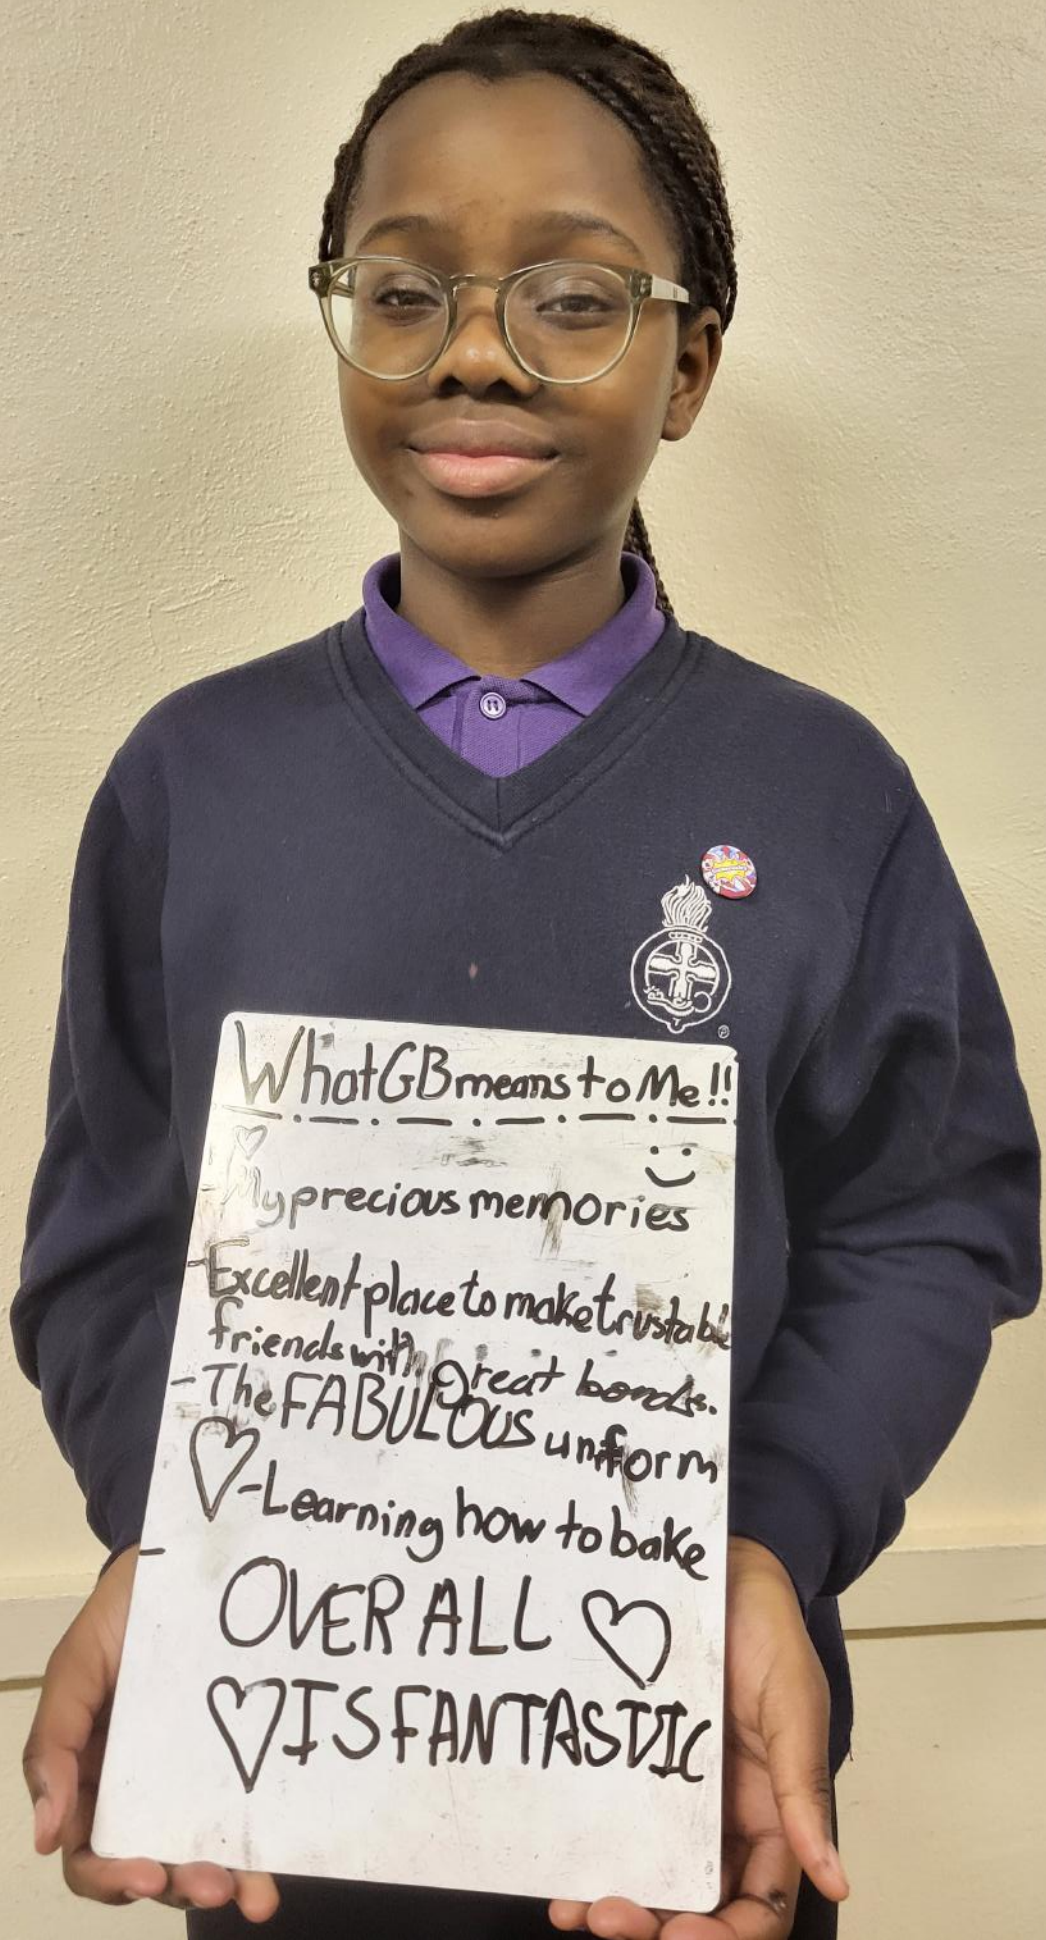 What GB means to Me!!
My precious memories
-Excellent place to make trustable
friends with great bonds.
-The FABULOUS uniform
-Learning how to bake
OVER ALL
IS FANTASTIC